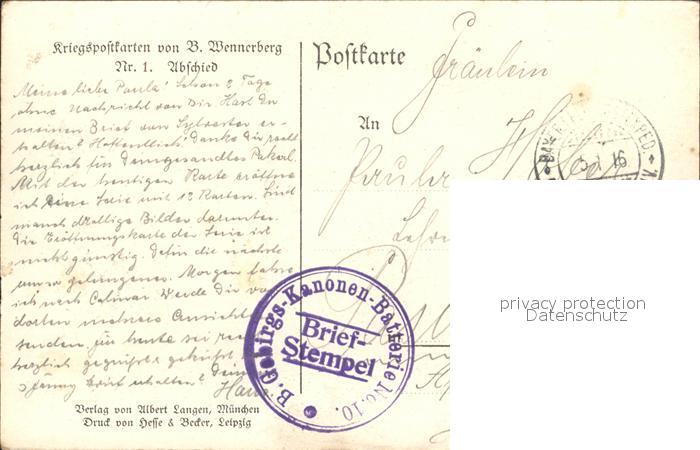 Kriegspostkarten von B. Wennerberg
Nr. 1. Abschied
Postkarte
Meine liebe Paula! Schon 2 Tage
ohne Nachricht von Dir. Hast Du
meinen Brief von Sylvester er-
halten? Hoffentlich! Danke Dir recht
herzlich für Dein gesandtes Pakerl.
Mit der heutigen Karte eröffne
ich eine Serie mit 12 Karten. Sind
manch drollige Bilder darunter.
Die Eröffnungskarte der Serie ist
nicht günstig. Dafür die nächste
um so gelungener. Morgen fahre
ich nach Colmar. Werde Dir von
dorten mehrere Ansichten
senden. für heute sei recht
herzlich gegrüßt geküßt
erhalten? Dein
Hans
Fräulein
An
Paula
16
B. Gebirgs-Kanonen-Batterie No. 10.
Brief-
Stempel
privacy protection
Datenschutz
Verlag von Albert Langen, München
Druck von Hesse & Becker, Leipzig